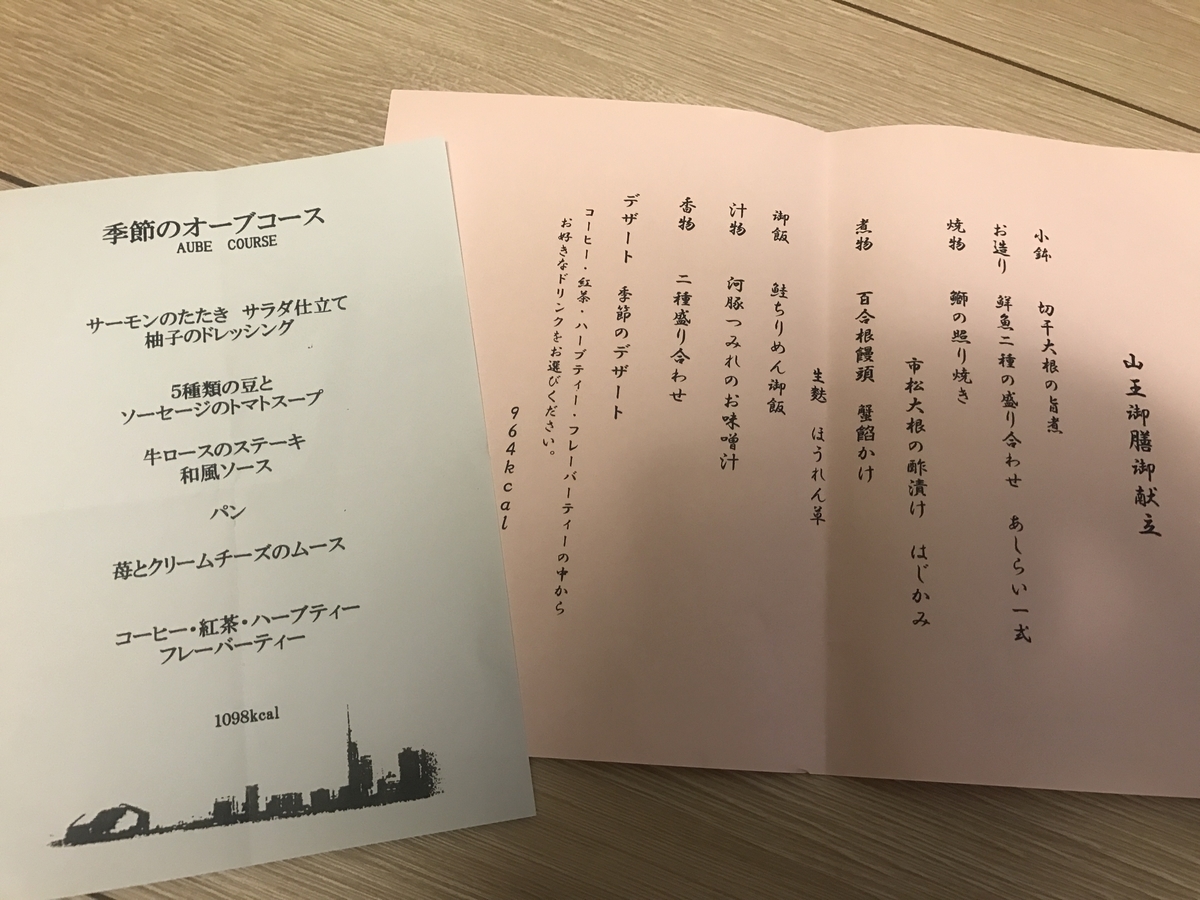 季節のオーブコース
AUBE COURSE
サーモンのたたき サラダ仕立て
柚子のドレッシング
5種類の豆と
ソーセージのトマトスープ
牛ロースのステーキ
和風ソース
パン
苺とクリームチーズのムース
コーヒー・紅茶・ハーブティー
フレーバーティー
1098kcal
山王御膳御献立
小鉢 切干大根の旨煮
お造り 鮮魚二種の盛り合わせ あしらい一式
焼物 鰤の照り焼き
市松大根の酢漬け はじかみ
煮物 百合根饅頭 蟹餡かけ
生麩 ほうれん草
御飯 鮭ちりめん御飯
汁物 河豚つみれのお味噌汁
香物 二種盛り合わせ
デザート 季節のデザート
コーヒー・紅茶・ハーブティー・フレーバーティーの中から
お好きなドリンクをお選びください。
964kcal